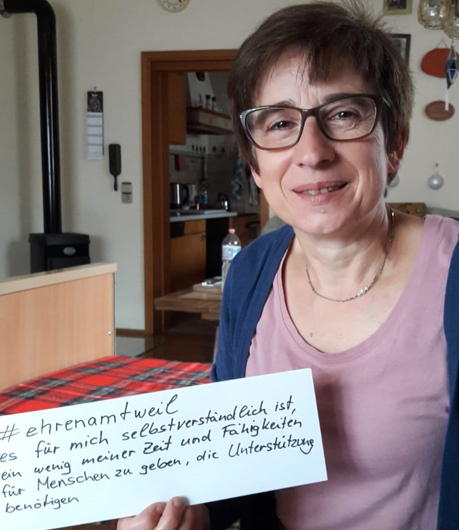 #ehrenamtweil
es für mich selbstverständlich ist,
ein wenig meiner Zeit und Fähigkeiten
für Menschen zu geben, die Unterstützung
benötigen